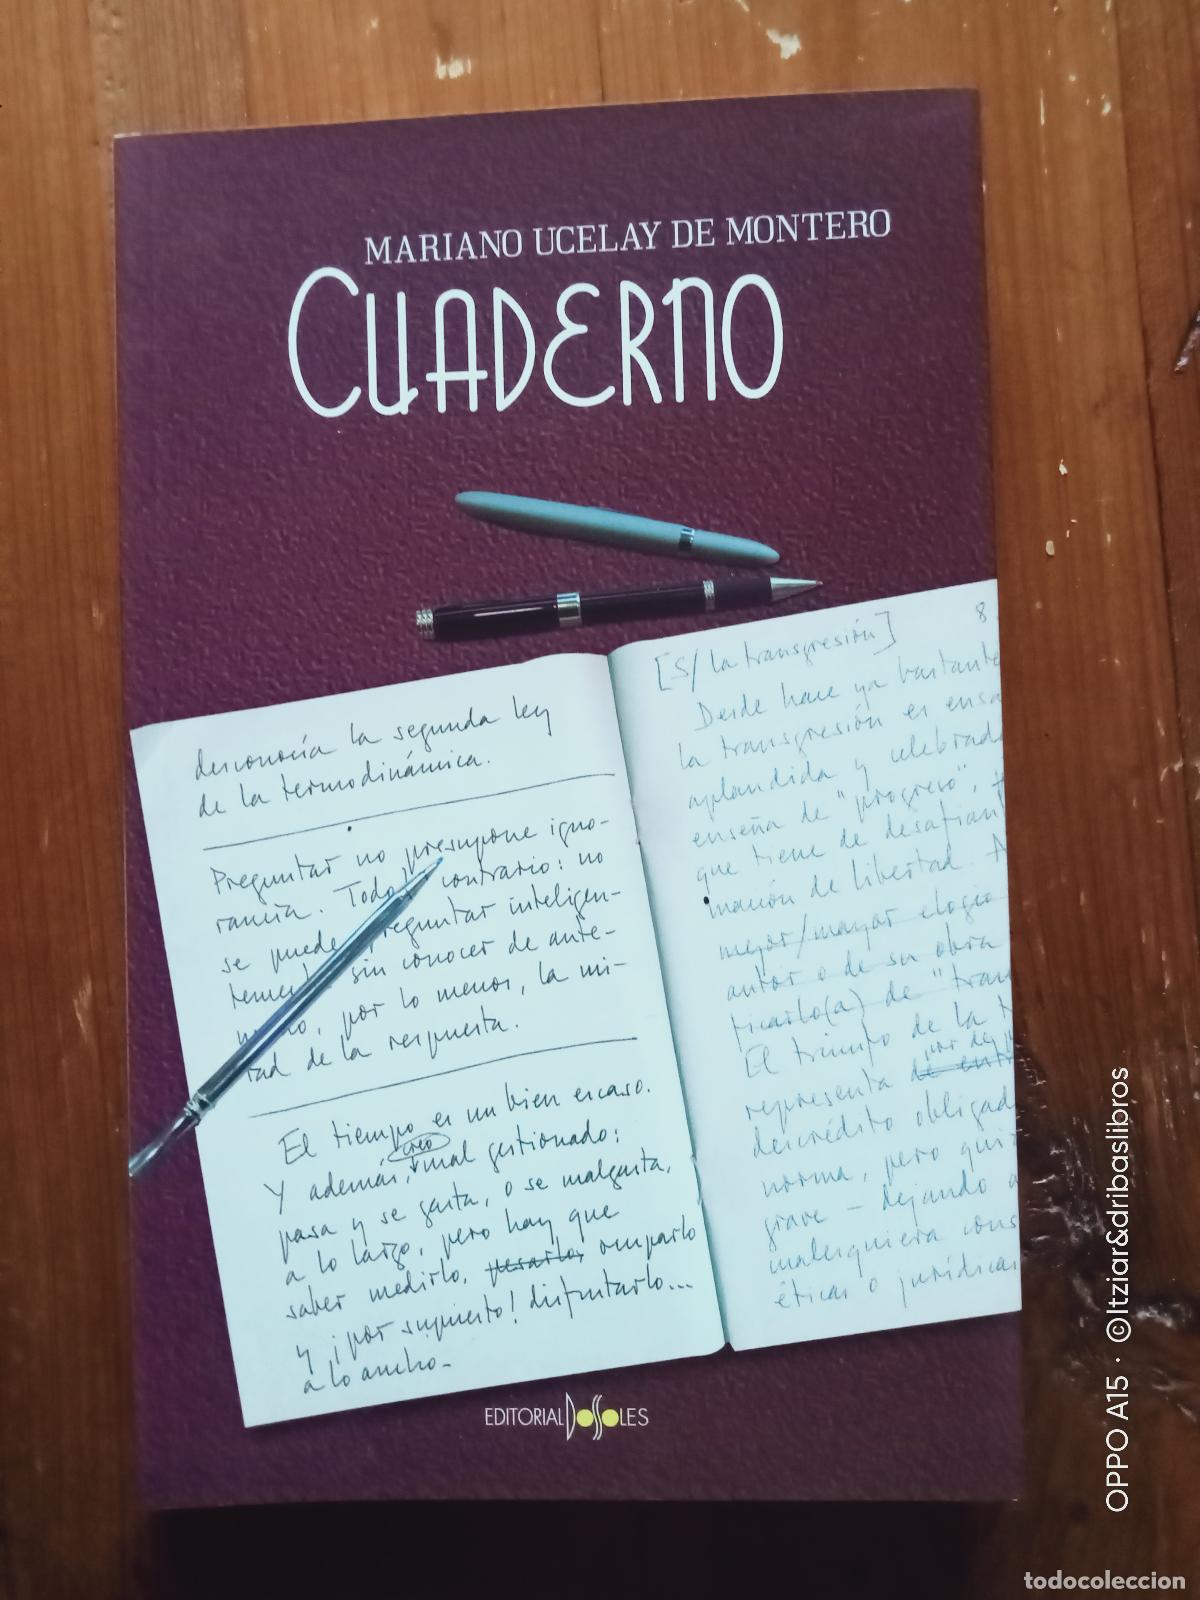 MARIANO UCELAY DE MONTERO
CUADERNO
desconocía la segunda ley
de la termodinámica.
Preguntar no presupone igno-
rancia. Todo contrario: no
se puede preguntar inteligen-
temente sin conocer de ante-
mano, por lo menos, la mi-
tad de la respuesta.
El tiempo es un bien escaso.
creo
Y además, mal gestionado:
pasa y se gasta, o se malgasta,
a lo largo, pero hay que
saber medirlo, pesarlo, ocuparlo
y ¡por supuesto! disfrutarlo...
a lo ancho-
8
[S/ la transgresión]
Desde hace ya bastante
la transgresión es ensa
aplaudida y celebrada
enseña de "progreso",
que tiene de desafian
mación de libertad. A
mejor/mayor elogio
autor o de su obra
ficarlo(a) de "tran
El triunfo de la t
por de
representa de entr
descrédito obligad
norma, pero qui
grave - dejando a
malesquiera cons
éticas o jurídicas
EDITORIAL DosSoles
OPPO A15 · ©Itziar&dribaslibros
todocoleccion